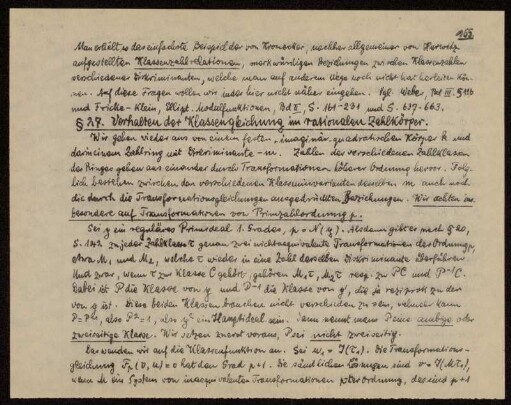 152
Man erhält so das einfachste Beispiel der von Kronecker, nachher allgemeiner von Hurwitz
aufgestellten Klassenzahlrelationen, merkwürdigen Beziehungen zwischen Klassenzahlen
verschiedener Diskriminanten, welche man auf anderem Wege noch nicht hat herleiten kön-
nen. Auf diese Fragen wollen wir indes hier nicht näher eingehen. Vgl. Weber, Bd III. § 116
und Fricke-Klein, Ellipt. Modulfunktionen, Bd II, S. 161-231 und S. 637-663.
§ 27. Verhalten der Klassengleichung im rationalen Zahlkörper.
Wir gehen wieder aus von einem festen, imaginär-quadratischen Körper k und
darin einem Zahlring mit Diskriminante -m. Zahlen der verschiedenen Zahlklassen
des Ringes gehen aus einander durch Transformationen höherer Ordnung hervor. Folg-
lich bestehen zwischen den verschiedenen Klasseninvarianten desselben m auch noch
die durch die Transformationsgleichungen ausgedrückten Beziehungen. Wir achten ins-
besondere auf Transformationen von Primzahlordnung p.
Sei y ein reguläres Primideal 1. Grades, p = N(y). Alsdann gibt es nach § 20,
S. zu jeder Zahlklasse τ genau zwei nichtaequivalente Transformationen der Ordnung p,
etwa M₁ und M₂, welche τ wieder in eine Zahl derselben Diskriminante überführen.
Und zwar, wenn τ zur Klasse C gehört, gehören M₁τ, M₂τ resp. zu PC und P⁻¹C.
Dabei ist P die Klasse von y und P⁻¹ die Klasse von y', die ja reziprok zu der
von y ist. Diese beiden Klassen brauchen nicht verschieden zu sein, vielmehr kann
P = P⁻¹, also P² = 1, also y² ein Hauptideal sein. Dann nennt man P eine oder
zweiseitige Klasse. Wir setzen zuerst voraus, P sei nicht zweiseitig.
Das wenden wir auf die Klassenfunktion an. Sei die Transformations-
gleichung hat den Grad p+1. Die sämtlichen Lösungen sind
wenn M ein System von inaequivalenten Transformationen pter Ordnung, das sind p+1